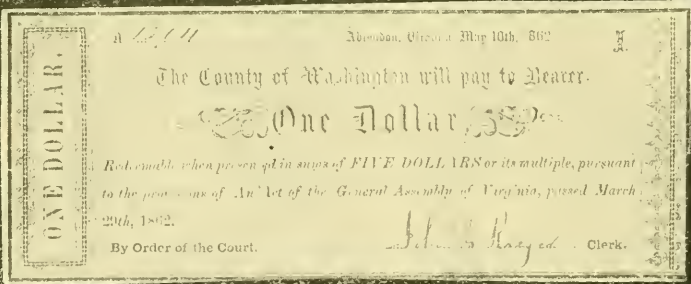 ONE DOLLAR.
A
Abingdon, Virginia, May 10th, 1862
The County of Washington will pay to Bearer.
One Dollar
Redeemable when presented in sums of FIVE DOLLARS or its multiple, pursuant
to the provisions of An Act of the General Assembly of Virginia, passed March
29th, 1862.
By Order of the Court. Clerk.